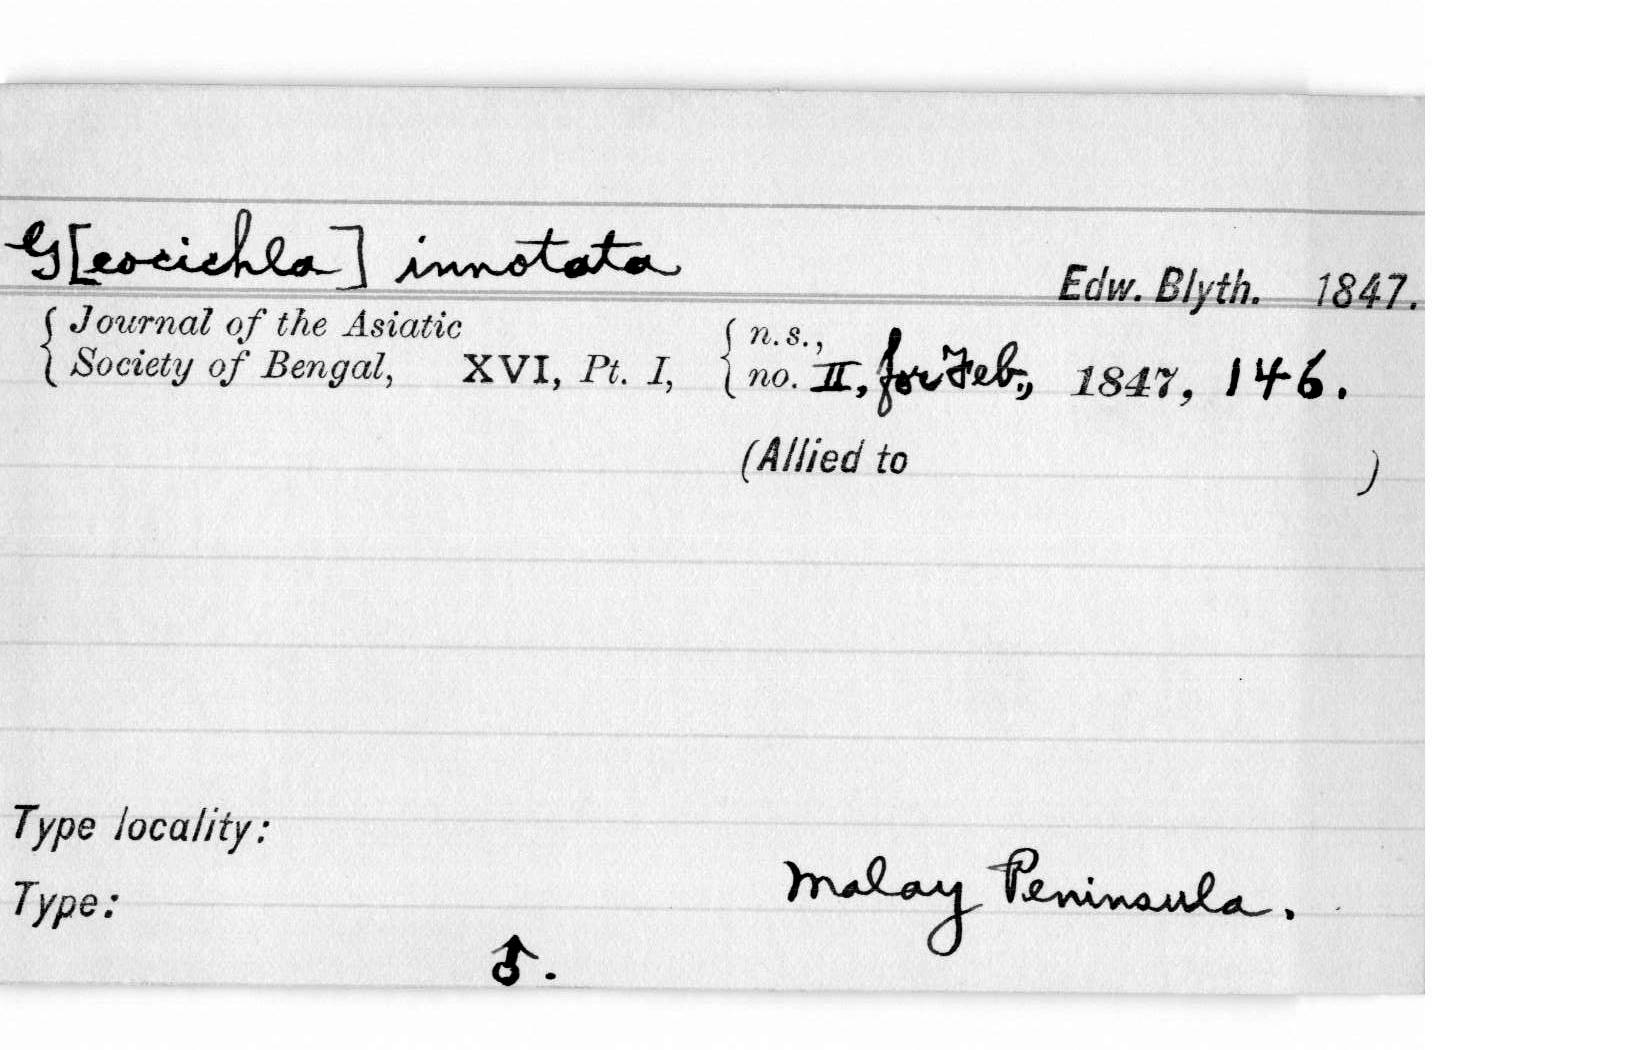 G[eocichla] innotata
Edw. Blyth. 1847.
{ Journal of the Asiatic
Society of Bengal, XVI, Pt. I, { n.s.,
no. II, for Feb., 1847, 146.
(Allied to )
Type locality:
Malay Peninsula.
Type:
♂.